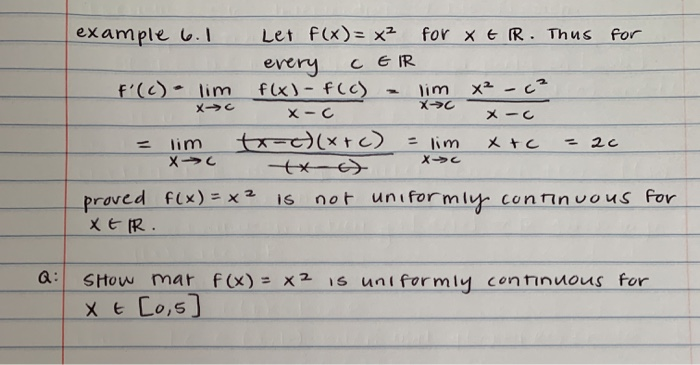 example 6.1 Let f(x) = x² for x ∈ ℝ. Thus for
every c ∈ ℝ
f'(c) = lim x→c f(x) - f(c) / x - c = lim x→c x² - c² / x - c
= lim x→c (x-c)(x+c) / (x-c) = lim x→c x + c = 2c
proved f(x) = x² is not uniformly continuous for
x ∈ ℝ.
Q: Show that f(x) = x² is uniformly continuous for
x ∈ [0,5]